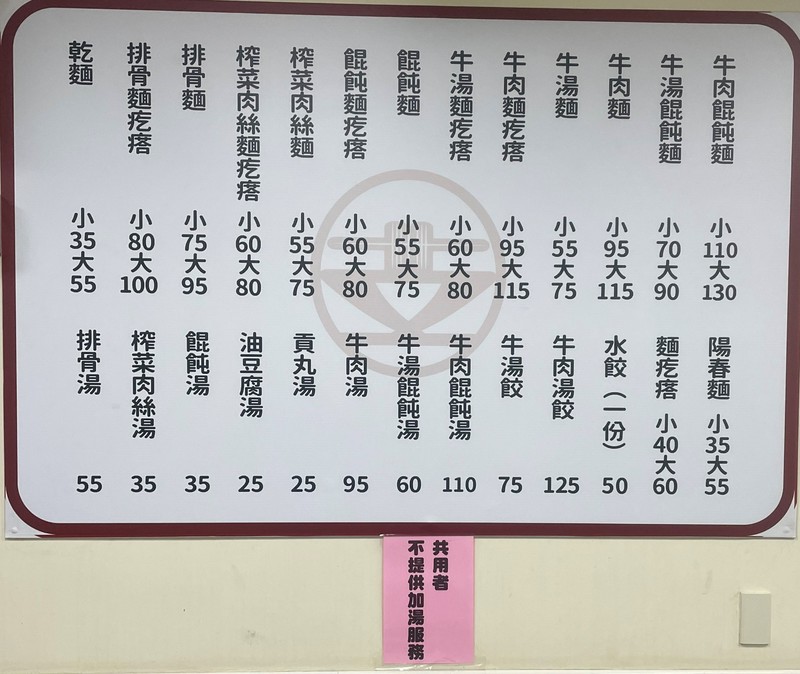 牛肉餛飩麵 小110大130
牛湯餛飩麵 小70大90
牛肉麵 小95大115
牛湯麵 小55大75
牛肉麵疙瘩 小95大115
牛湯麵疙瘩 小60大80
餛飩麵 小55大75
餛飩麵疙瘩 小60大80
榨菜肉絲麵 小55大75
榨菜肉絲麵疙瘩 小60大80
排骨麵 小75大95
排骨麵疙瘩 小80大100
乾麵 小35大55
陽春麵 小35大55
麵疙瘩 小40大60
水餃（一份） 50
牛肉湯餃 125
牛湯餃 75
牛肉餛飩湯 110
牛湯餛飩湯 60
牛肉湯 95
貢丸湯 25
油豆腐湯 25
餛飩湯 35
榨菜肉絲湯 35
排骨湯 55
共用者
不提供加湯服務